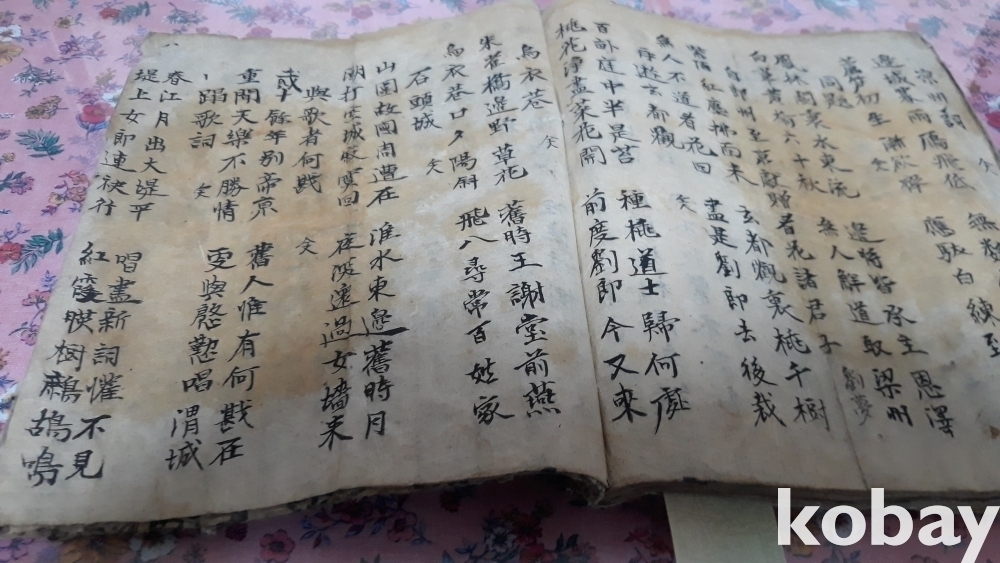 凉州詞 仝
邊城暮雨雁飛低 無數
蘆初生漸欲齊 應馱白練至
同題
鳳林關裏水東流 邊將皆承主恩澤
白草黃楡六十秋 無人解道取梁州
自郎州至京戲贈看花諸君子 劉夢
紫陌紅塵拂面來 玄都觀裏桃千樹
無人不道看花回 盡是劉郎去後栽
再遊玄都觀 仝
百畝庭中半是苔 種桃道士歸何處
桃花淨盡菜花開 前度劉郎今又來
烏衣巷 仝
朱雀橋邊野草花 舊時王謝堂前燕
烏衣巷口夕陽斜 飛入尋常百姓家
石頭城 仝
山圍故國周遭在 淮水東邊舊時月
潮打空城寂寞回 夜深還過女墻來
與歌者何戡 仝
餘年別帝京 舊人惟有何戡在
重聞天樂不勝情 更與慇懃唱渭城
踏歌詞 仝
春江月出大堤平 唱盡新詞懽不見
堤上女郎連袂行 紅霞暎樹鷓鴣鳴
kobay